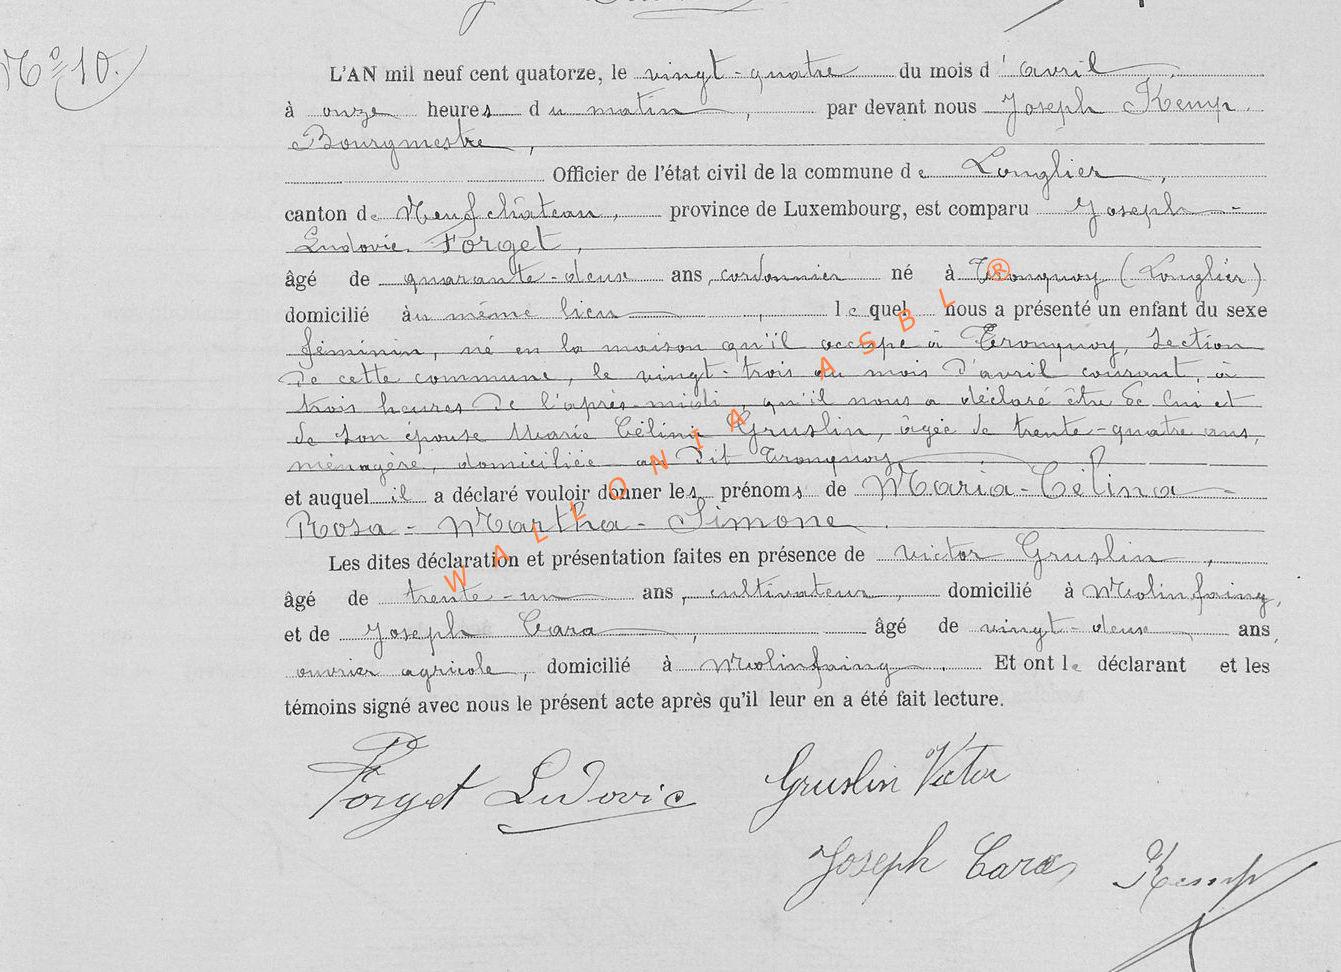 No 10.
L'AN mil neuf cent quatorze, le vingt-quatre du mois d'avril
à onze heures du matin, par devant nous Joseph Kemp
Bourgmestre,
Officier de l'état civil de la commune de Longlier,
canton de Neufchâteau, province de Luxembourg, est comparu Joseph-
Ludovic Forget,
âgé de quarante-deux ans, cordonnier né à Tronquoy (Longlier)
domicilié au même lieu, lequel nous a présenté un enfant du sexe
féminin, né en la maison qu'il occupe à Tronquoy, section
de cette commune, le vingt-trois du mois d'avril courant, à
trois heures de l'après-midi, qu'il nous a déclaré être de lui et
de son épouse Marie Céline Gruslin, âgée de trente-quatre ans,
ménagère, domiciliée au dit Tronquoy
et auquel il a déclaré vouloir donner les prénoms de Maria-Célina-
Rosa-Martha-Simone.
Les dites déclaration et présentation faites en présence de victor Gruslin,
âgé de trente-un ans, cultivateur, domicilié à Molinfaing,
et de Joseph Cara, âgé de vingt-deux ans,
ouvrier agricole, domicilié à Molinfaing. Et ont le déclarant et les
témoins signé avec nous le présent acte après qu'il leur en a été fait lecture.
Forget Ludovic Gruslin Victor
Joseph Cara Kemp
WALLONIA ASBL ®